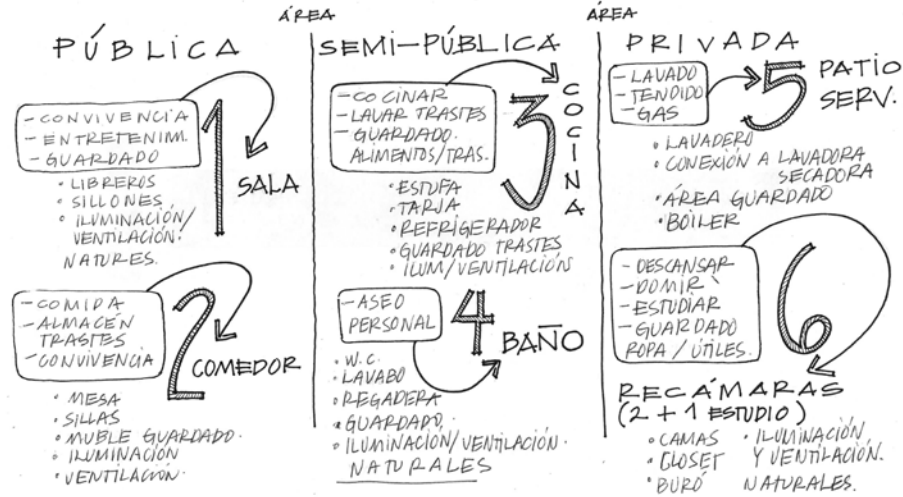 PÚBLICA
- CONVIVENCIA
- ENTRETENIM.
- GUARDADO
1
SALA
• LIBREROS
• SILLONES
• ILUMINACIÓN/
VENTILACIÓN.
NATURES.
- COMIDA
- ALMACÉN
TRASTES
- CONVIVENCIA
2
COMEDOR
• MESA
• SILLAS
• MUBLE GUARDADO.
• ILUMINACIÓN
• VENTILACIÓN.
ÁREA
SEMI-PÚBLICA
- COCINAR
- LAVAR TRASTES
- GUARDADO.
ALIMENTOS/TRAS.
3
COCINA
• ESTUFA
• TARJA
• REFRIGERADOR
• GUARDADO TRASTES
• ILUM/VENTILACIÓN
- ASEO
PERSONAL
4
BAÑO
• W.C.
• LAVABO
• REGADERA
• GUARDADO.
• ILUMINACIÓN/VENTILACIÓN.
NATURALES
ÁREA
PRIVADA
- LAVADO
- TENDIDO
- GAS
5
PATIO
SERV.
• LAVADERO
• CONEXIÓN A LAVADORA
SECADORA
• ÁREA GUARDADO
• BOILER
- DESCANSAR
- DOMIR
- ESTUDIAR
- GUARDADO
ROPA / ÚTILES.
6
RECÁMARAS
(2 + 1 ESTUDIO)
• CAMAS
• CLOSET
• BURÓ
• ILUMINACIÓN
Y VENTILACIÓN.
NATURALES.